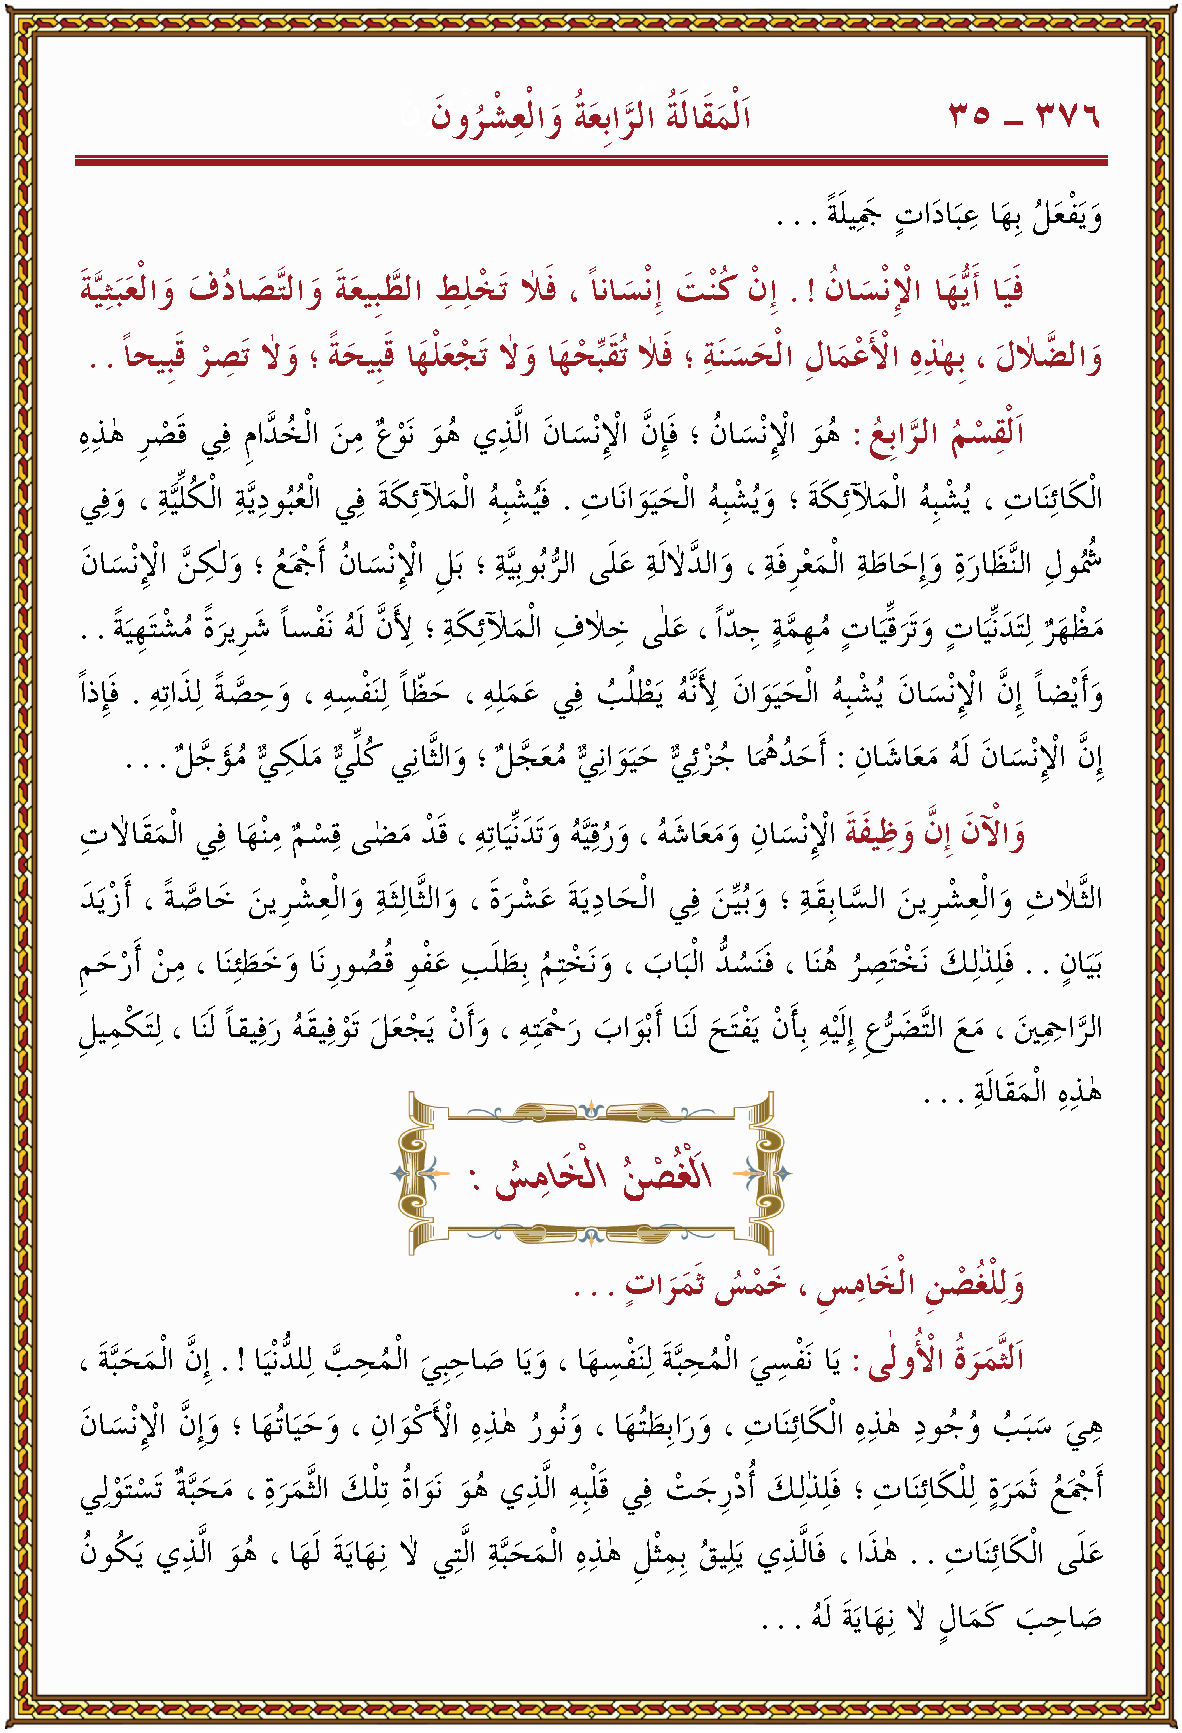 ٣٧٦ ــ ٣٥ اَلْمَقَالَةُ الرَّابِعَةُ وَالْعِشْرُونَ
وَيَفْعَلُ بِهَا عِبَادَاتٍ جَمِيلَةً . . .
فَيَا أَيُّهَا الْإِنْسَانُ ! . إِنْ كُنْتَ إِنْسَاناً ، فَلاٰ تَخْلِطِ الطَّبِيعَةَ وَالتَّصَادُفَ وَالْعَبَثِيَّةَ
وَالضَّلاٰلَ ، بِهٰذِهِ الْأَعْمَالِ الْحَسَنَةِ ؛ فَلاٰ تُقَبِّحْهَا وَلاٰ تَجْعَلْهَا قَبِيحَةً ؛ وَلاٰ تَصِرْ قَبِيحاً . .
اَلْقِسْمُ الرَّابِعُ : هُوَ الْإِنْسَانُ ؛ فَإِنَّ الْإِنْسَانَ الَّذِي هُوَ نَوْعٌ مِنَ الْخُدَّامِ فِي قَصْرِ هٰذِهِ
الْكَائِنَاتِ ، يُشْبِهُ الْمَلآٰئِكَةَ ؛ وَيُشْبِهُ الْحَيَوَانَاتِ . فَيُشْبِهُ الْمَلآٰئِكَةَ فِي الْعُبُودِيَّةِ الْكُلِّيَّةِ ، وَفِي
شُمُولِ النَّظَارَةِ وَإِحَاطَةِ الْمَعْرِفَةِ ، وَالدَّلاٰلَةِ عَلَى الرُّبُوبِيَّةِ ؛ بَلِ الْإِنْسَانُ أَجْمَعُ ؛ وَلٰكِنَّ الْإِنْسَانَ
مَظْهَرٌ لِتَدَنِّيَاتٍ وَتَرَقِّيَاتٍ مُهِمَّةٍ جِدّاً ، عَلٰى خِلاٰفِ الْمَلآٰئِكَةِ ؛ لِأَنَّ لَهُ نَفْساً شَرِيرَةً مُشْتَهِيَةً . .
وَأَيْضاً إِنَّ الْإِنْسَانَ يُشْبِهُ الْحَيَوَانَ لِأَنَّهُ يَطْلُبُ فِي عَمَلِهِ ، حَظّاً لِنَفْسِهِ ، وَحِصَّةً لِذَاتِهِ . فَإِذاً
إِنَّ الْإِنْسَانَ لَهُ مَعَاشَانِ : أَحَدُهُمَا جُزْئِيٌّ حَيَوَانِيٌّ مُعَجَّلٌ ؛ وَالثَّانِي كُلِّيٌّ مَلَكِيٌّ مُؤَجَّلٌ . . .
وَالْآنَ إِنَّ وَظِيفَةَ الْإِنْسَانِ وَمَعَاشَهُ ، وَرُقِيَّهُ وَتَدَنِّيَاتِهِ ، قَدْ مَضٰى قِسْمٌ مِنْهَا فِي الْمَقَالاٰتِ
الثَّلاٰثِ وَالْعِشْرِينَ السَّابِقَةِ ؛ وَبُيِّنَ فِي الْحَادِيَةَ عَشْرَةَ ، وَالثَّالِثَةِ وَالْعِشْرِينَ خَاصَّةً ، أَزْيَدَ
بَيَانٍ . . فَلِذٰلِكَ نَخْتَصِرُ هُنَا ، فَنَسُدُّ الْبَابَ ، وَنَخْتِمُ بِطَلَبِ عَفْوِ قُصُورِنَا وَخَطَئِنَا ، مِنْ أَرْحَمِ
الرَّاحِمِينَ ، مَعَ التَّضَرُّعِ إِلَيْهِ بِأَنْ يَفْتَحَ لَنَا أَبْوَابَ رَحْمَتِهِ ، وَأَنْ يَجْعَلَ تَوْفِيقَهُ رَفِيقاً لَنَا ، لِتَكْمِيلِ
هٰذِهِ الْمَقَالَةِ . . .
اَلْغُصْنُ الْخَامِسُ :
وَلِلْغُصْنِ الْخَامِسِ ، خَمْسُ ثَمَرَاتٍ . . .
اَلثَّمَرَةُ الْأُولٰى : يَا نَفْسِيَ الْمُحِبَّةَ لِنَفْسِهَا ، وَيَا صَاحِبِيَ الْمُحِبَّ لِلدُّنْيَا ! . إِنَّ الْمَحَبَّةَ ،
هِيَ سَبَبُ وُجُودِ هٰذِهِ الْكَائِنَاتِ ، وَرَابِطَتُهَا ، وَنُورُ هٰذِهِ الْأَكْوَانِ ، وَحَيَاتُهَا ؛ وَإِنَّ الْإِنْسَانَ
أَجْمَعُ ثَمَرَةٍ لِلْكَائِنَاتِ ؛ فَلِذٰلِكَ أُدْرِجَتْ فِي قَلْبِهِ الَّذِي هُوَ نَوَاةُ تِلْكَ الثَّمَرَةِ ، مَحَبَّةٌ تَسْتَوْلِي
عَلَى الْكَائِنَاتِ . . هٰذَا ، فَالَّذِي يَلِيقُ بِمِثْلِ هٰذِهِ الْمَحَبَّةِ الَّتِي لاٰ نِهَايَةَ لَهَا ، هُوَ الَّذِي يَكُونُ
صَاحِبَ كَمَالٍ لاٰ نِهَايَةَ لَهُ . . .